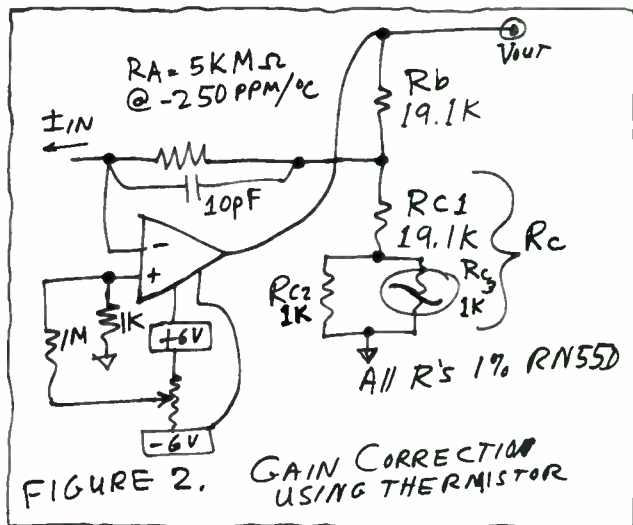 RA = 5KMΩ
@ -250 PPM/°C
Vout
Rb
19.1K
±IN
10pF
Rc1
19.1K
Rc
-
+
Rc2
1K
Rc3
1K
1M
1K
+6V
-6V
All R's 1% RN55D
FIGURE 2. GAIN CORRECTION
USING THERMISTOR